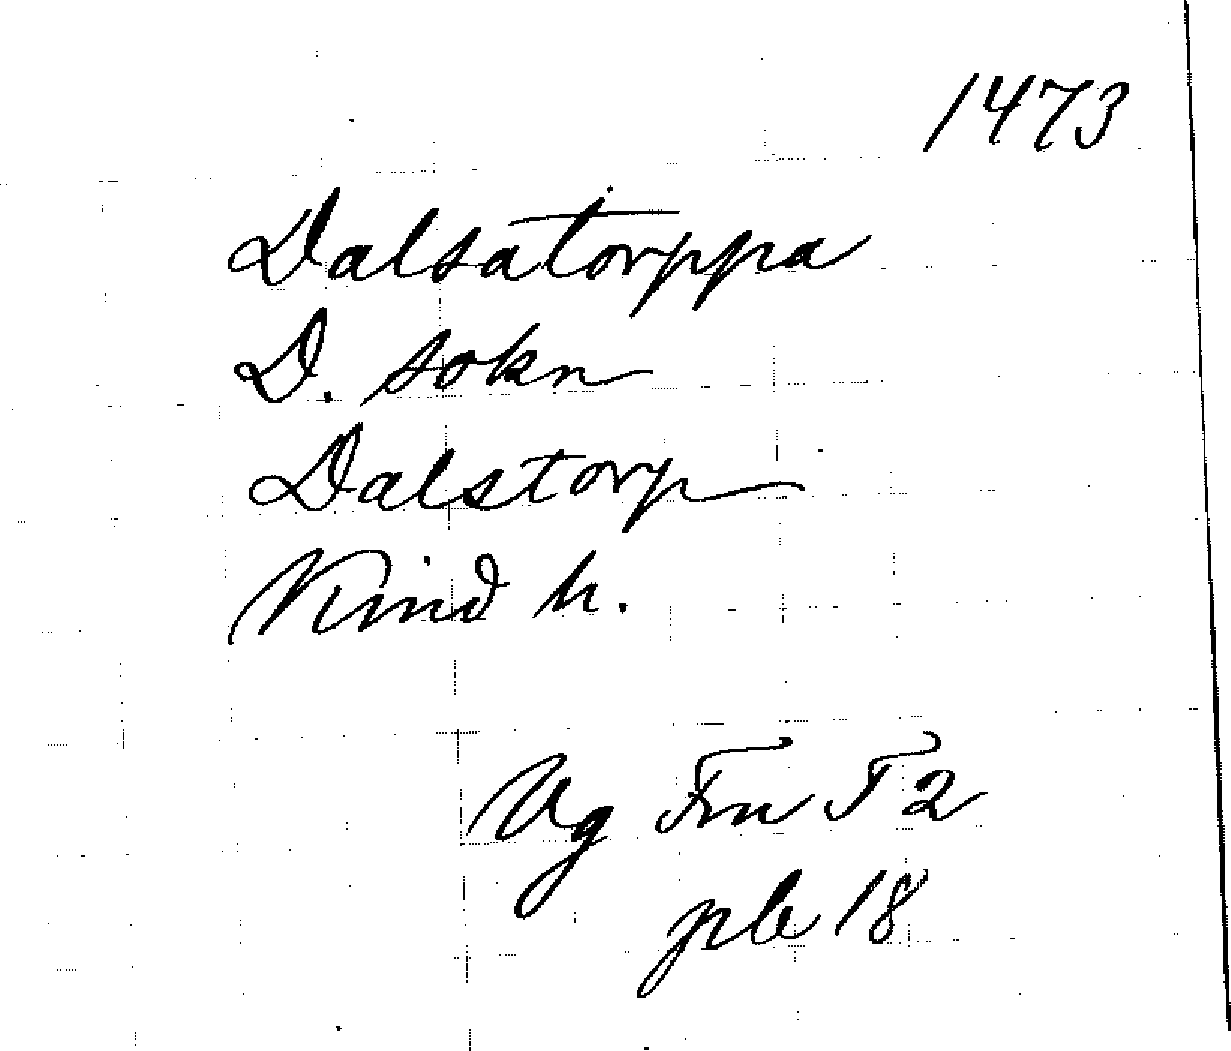 1473
Dalsatorppa
D. sokn
Dalstorp
Kind h.
Vg Fnu T2
pb 18